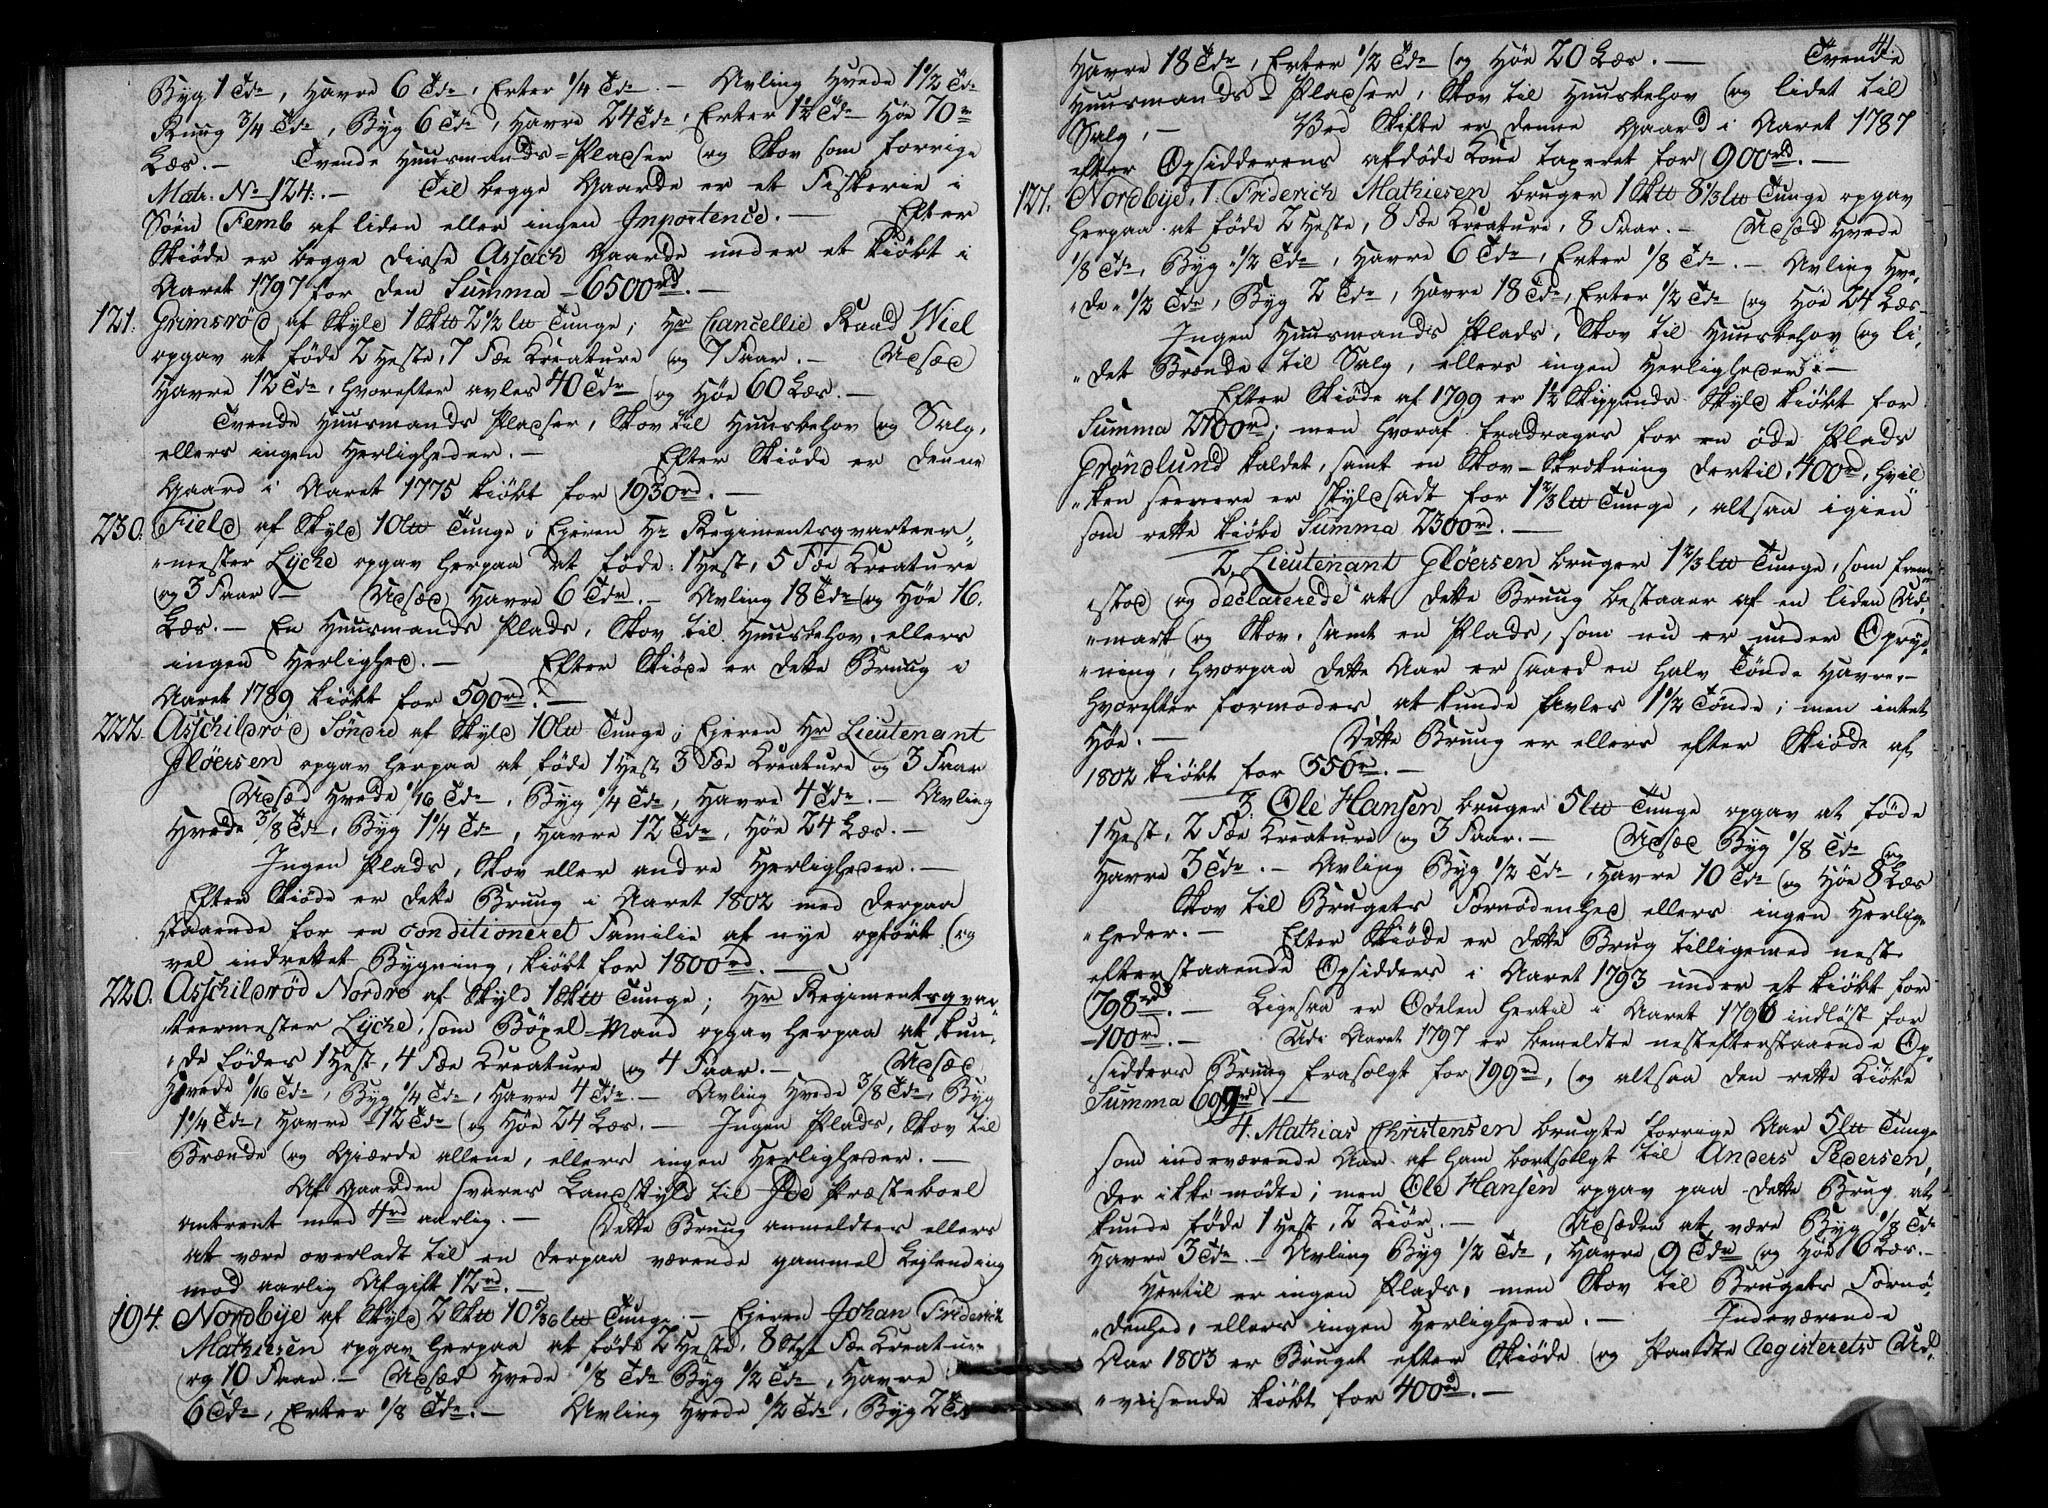 Byg 1 Tde, Havre 6 Tde, Erter 1/4 Tde. — Avling Hvede 1 1/2 Tde
Ruug 3/4 Tde, Byg 6 Tde, Havre 24 Tde, Erter 1 1/2 Tde Høe 70
Læs. — Tvende Huusmands-Pladser og Skov som forrige
Matr. No 124. — Til begge Gaarde er et Fiskerie i
Søen Femb af liden eller ingen Importence. — Efter
Skiøde er begge disse Assach Gaarde under et kiøbt i
Aaret 1797 for den Summa — 6500rd. —
121. Grimsrød af Skyld 1 Sktt 2 1/2 ltt Tunge; Hr Cancellie Raad Wiel
opgav at føde 2 Heste, 7 Fæe Kreature og 7 Faar. — Udsæd
Havre 12 Tde, hvorefter avles 40 Tdr og Høe 60 Læs. —
Tvende Huusmands Pladser, Skov til Huusbehov og Salg,
ellers ingen Herligheder. — Efter Skiøde er denne
Gaard i Aaret 1775 kiøbt for 1930rd. —
230. Field af Skyld 10 ltt Tunge; Ejeren Hr Regimentsqvarteer-
"mester Lyche opgav herpaa at føde: 1 Hest, 5 Fæe Kreature
og 3 Faar — Udsæd Havre 6 Tdr. — Avling 18 Tde og Høe 16.
Læs. — En Huusmands Plads, Skov til Huusbehov, ellers
ingen Herlighed. — Efter Skiøde er dette Bruug i
Aaret 1789 kiøbt for 590rd. —
222. Asschildrød Søndre af Skyld 10 ltt Tunge; Ejeren Hr Lieutenant
Gløersen opgav herpaa at føde 1 Hest 3 Fæe Kreature og 3 Faar
Udsæd Hvede 1/16 Tde, Byg 1/4 Tde, Havre 4 Tde. — Avling
Hvede 3/8 Tde, Byg 1 1/4 Tde, Havre 12 Tde, Høe 24 Læs. —
Ingen Plads, Skov eller andre Herligheder. —
Efter Skiøde er dette Bruug i Aaret 1802 med derpaa
staaende for en conditioneret Familie af nye opført og
vel indrettet Bygning, kiøbt for 1800rd. —
220. Asschildrød Nordre af Skyld 1 Sktt Tunge; Hr Regimentsqvar-
"teermester Lyche, som Bøxel-Mand opgav herpaa at kun-
"de fødes 1 Hest, 4 Fæe Kreature og 4 Faar. — Udsæd
Hvede 1/16 Tde, Byg 1/4 Tde, Havre 4 Tde. — Avling Hvede 3/8 Tde, Byg
1 1/4 Tde, Havre 12 Tde og Høe 24 Læs. — Ingen Plads, Skov til
Brænde og Gierde allene, ellers ingen Herligheder. —
Af Gaarden svares Landskyld til Ide Præsteboel
omtrent med 4rd aarlig. — Dette Bruug anmeldtes ellers
at være overladt til en derpaa værende gammel Leylending
mod aarlig Afgift 12rd. —
194. Nordbye af Skyld 2 Sktt 10 5/36 ltt Tunge. — Ejeren Johan Friderich
Mathiesen opgav herpaa at føde 2 Heste, 8 Stk Fæe Kreature
og 10 Faar. — Udsæd Hvede 1/8 Tde Byg 1/2 Tde, Havre
6 Tde, Erter 1/8 Tde. — Avling Hvede 1/2 Tde, Byg 2 Tde
41.
Havre 18 Tde, Erter 1/2 Tde og Høe 20 Læs. — Tvende
Huusmands-Pladser, Skov til Huusbehov og lidet til
Salg, — Ved Skifte er denne Gaard i Aaret 1787
efter Opsidderens afdøde Kone taxeret for 900rd. —
127. Nordbye, 1. Friderich Mathiesen bruger 1 Sktt 8 1/3 ltt Tunge opgav
herpaa at føde 2 Heste, 8 Fæe Kreature, 8 Faar. — Udsæd Hvede
1/8 Tde, Byg 1/2 Tde, Havre 6 Tde, Erter 1/8 Tde. — Avling Hve-
"de 1/2 Tde, Byg 2 Tde, Havre 18 Tde, Erter 1/2 Tde og Høe 24 Læs
Ingen Huusmands Plads, Skov til Huusbehov og li-
"det Brænde til Salg, ellers ingen Herligheder. —
Efter Skiøde af 1799 er 1 1/2 Skippunds Skyld kiøbt for
Summa 2700rd; men hvoraf fradrages for en øde Plads
Grønlund kaldet, samt en Skov-Strekning dertil, 400rd, hvil
"ken seenere er skyldsadt for 1 2/3 ltt Tunge, altsaa igien
som rette kiøbe Summa 2300rd. —
2. Lieutenant Gløersen bruger 1 2/3 ltt Tunge, som frem-
"stod og declarerede at dette Bruug bestaaer af en liden Ud-
"mark og Skov, samt en Plads, som nu er under Opryd-
"ning, hvorpaa dette Aar er saaed en halv Tønde Havre —
hvorefter formodes at kunde avles 1 1/2 Tønde; men intet
Høe. — Dette Bruug er ellers efter Skiøde af
1802 kiøbt for 550rd. —
3. Ole Hansen bruger 5 ltt Tunge opgav at føde
1 Hest, 2 Fæe Kreature og 3 Faar. — Udsæd Byg 1/8 Tde og
Havre 3 Tde. — Avling Byg 1/2 Tde, Havre 10 Tde og Høe 8 Læs
Skov til Brugets Fornødenhed ellers ingen Herlig-
"heder. — Efter Skiøde er dette Brug tilligemed nest
efterstaaende Opsidders i Aaret 1793 under et kiøbt for
798rd. — Ligesaa er Odelen hertil i Aaret 1796 indløst for
—100rd. — Udi Aaret 1797 er bemeldte nestefterstaaende Op-
sidders Bruug frasolgt for 199rd, og altsaa den rette Kiøbe
Summa 699rd —
4. Mathias Christensen brugte forrige Aar 5 ltt Tunge
som indeværende Aar af ham bortsolgt til Anders Pedersen,
der ikke mødte; men Ole Hansen opgav paa dette Brug at
kunde føde 1 Hest, 2 Kiør. — Udsæden at være Byg 1/8 Tde
Havre 3 Tde. — Avling Byg 1/2 Tde, Havre 9 Tde og Høe 6 Læs. —
Hertil er ingen Plads, men Skov til Brugets Fornø-
"denhed, ellers ingen Herligheder. — Indeværende
Aar 1803 er Bruget efter Skiøde og Pandte Registerets Ud-
"viisende kiøbt for 400rd. —